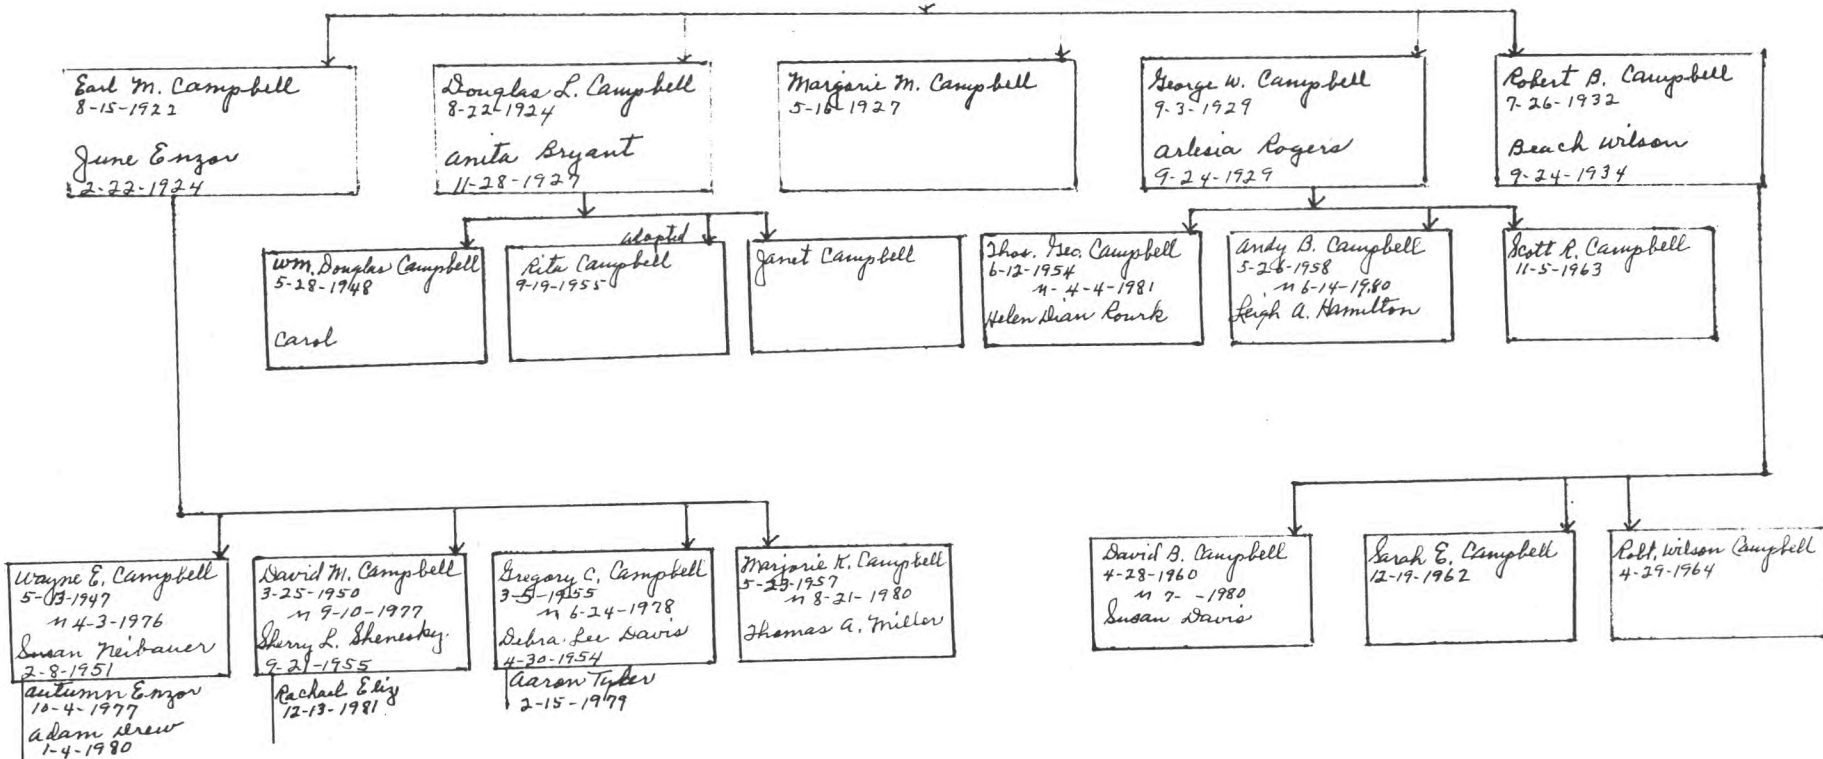 Earl M. Campbell
8-15-1922
June Enzor
2-22-1924
Douglas L. Campbell
8-22-1924
Anita Bryant
11-28-1927
Marjorie M. Campbell
5-16-1927
George W. Campbell
9-3-1929
Arlesia Rogers
9-24-1929
Robert B. Campbell
7-26-1932
Beach Wilson
9-24-1934
Wm. Douglas Campbell
5-28-1948
Carol
adopted
Rita Campbell
9-19-1955
Janet Campbell
Thos. Geo. Campbell
6-12-1954
m-4-4-1981
Helen Dian Rourk
Andy B. Campbell
5-26-1958
m 6-14-1980
Leigh A. Hamilton
Scott R. Campbell
11-5-1963
Wayne E. Campbell
5-13-1947
m 4-3-1976
Susan Neibauer
2-8-1951
Autumn Enzor
10-4-1977
Adam Drew
1-4-1980
David M. Campbell
3-25-1950
m 9-10-1977
Sherry L. Shenesky
9-21-1955
Rachael Eliz
12-13-1981
Gregory C. Campbell
3-5-1955
m 6-24-1978
Debra Lee Davis
4-30-1954
Aaron Tyler
2-15-1979
Marjorie K. Campbell
5-23-1957
m 8-21-1980
Thomas A. Miller
David B. Campbell
4-28-1960
m 7- -1980
Susan Davis
Sarah E. Campbell
12-19-1962
Robt. Wilson Campbell
4-29-1964